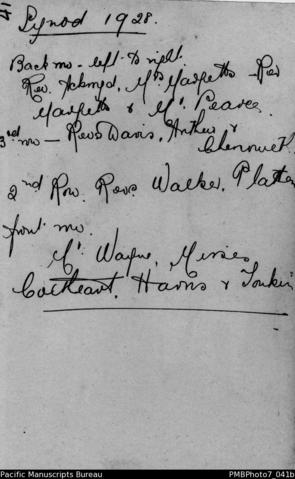 Synod 1928.
Back row - left to right.
Rev. Ackroyd, Mrs Margetts - Rev
Margetts & Mr. Pearce.
3rd row - Revs Davis, Arthur &
Chenoweth.
2nd Row. Revs. Walker, Platten
front row.
Mr. Wayne, Misses
Harris & Tonkin
Pacific Manuscripts Bureau
PMBPhoto7_041b